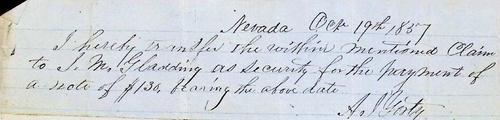 Nevada Oct 19th 1857
I hereby transfer the within mentioned Claim
to J. M. Gladding as security for the payment of
a note of $130, bearing the above date
A J